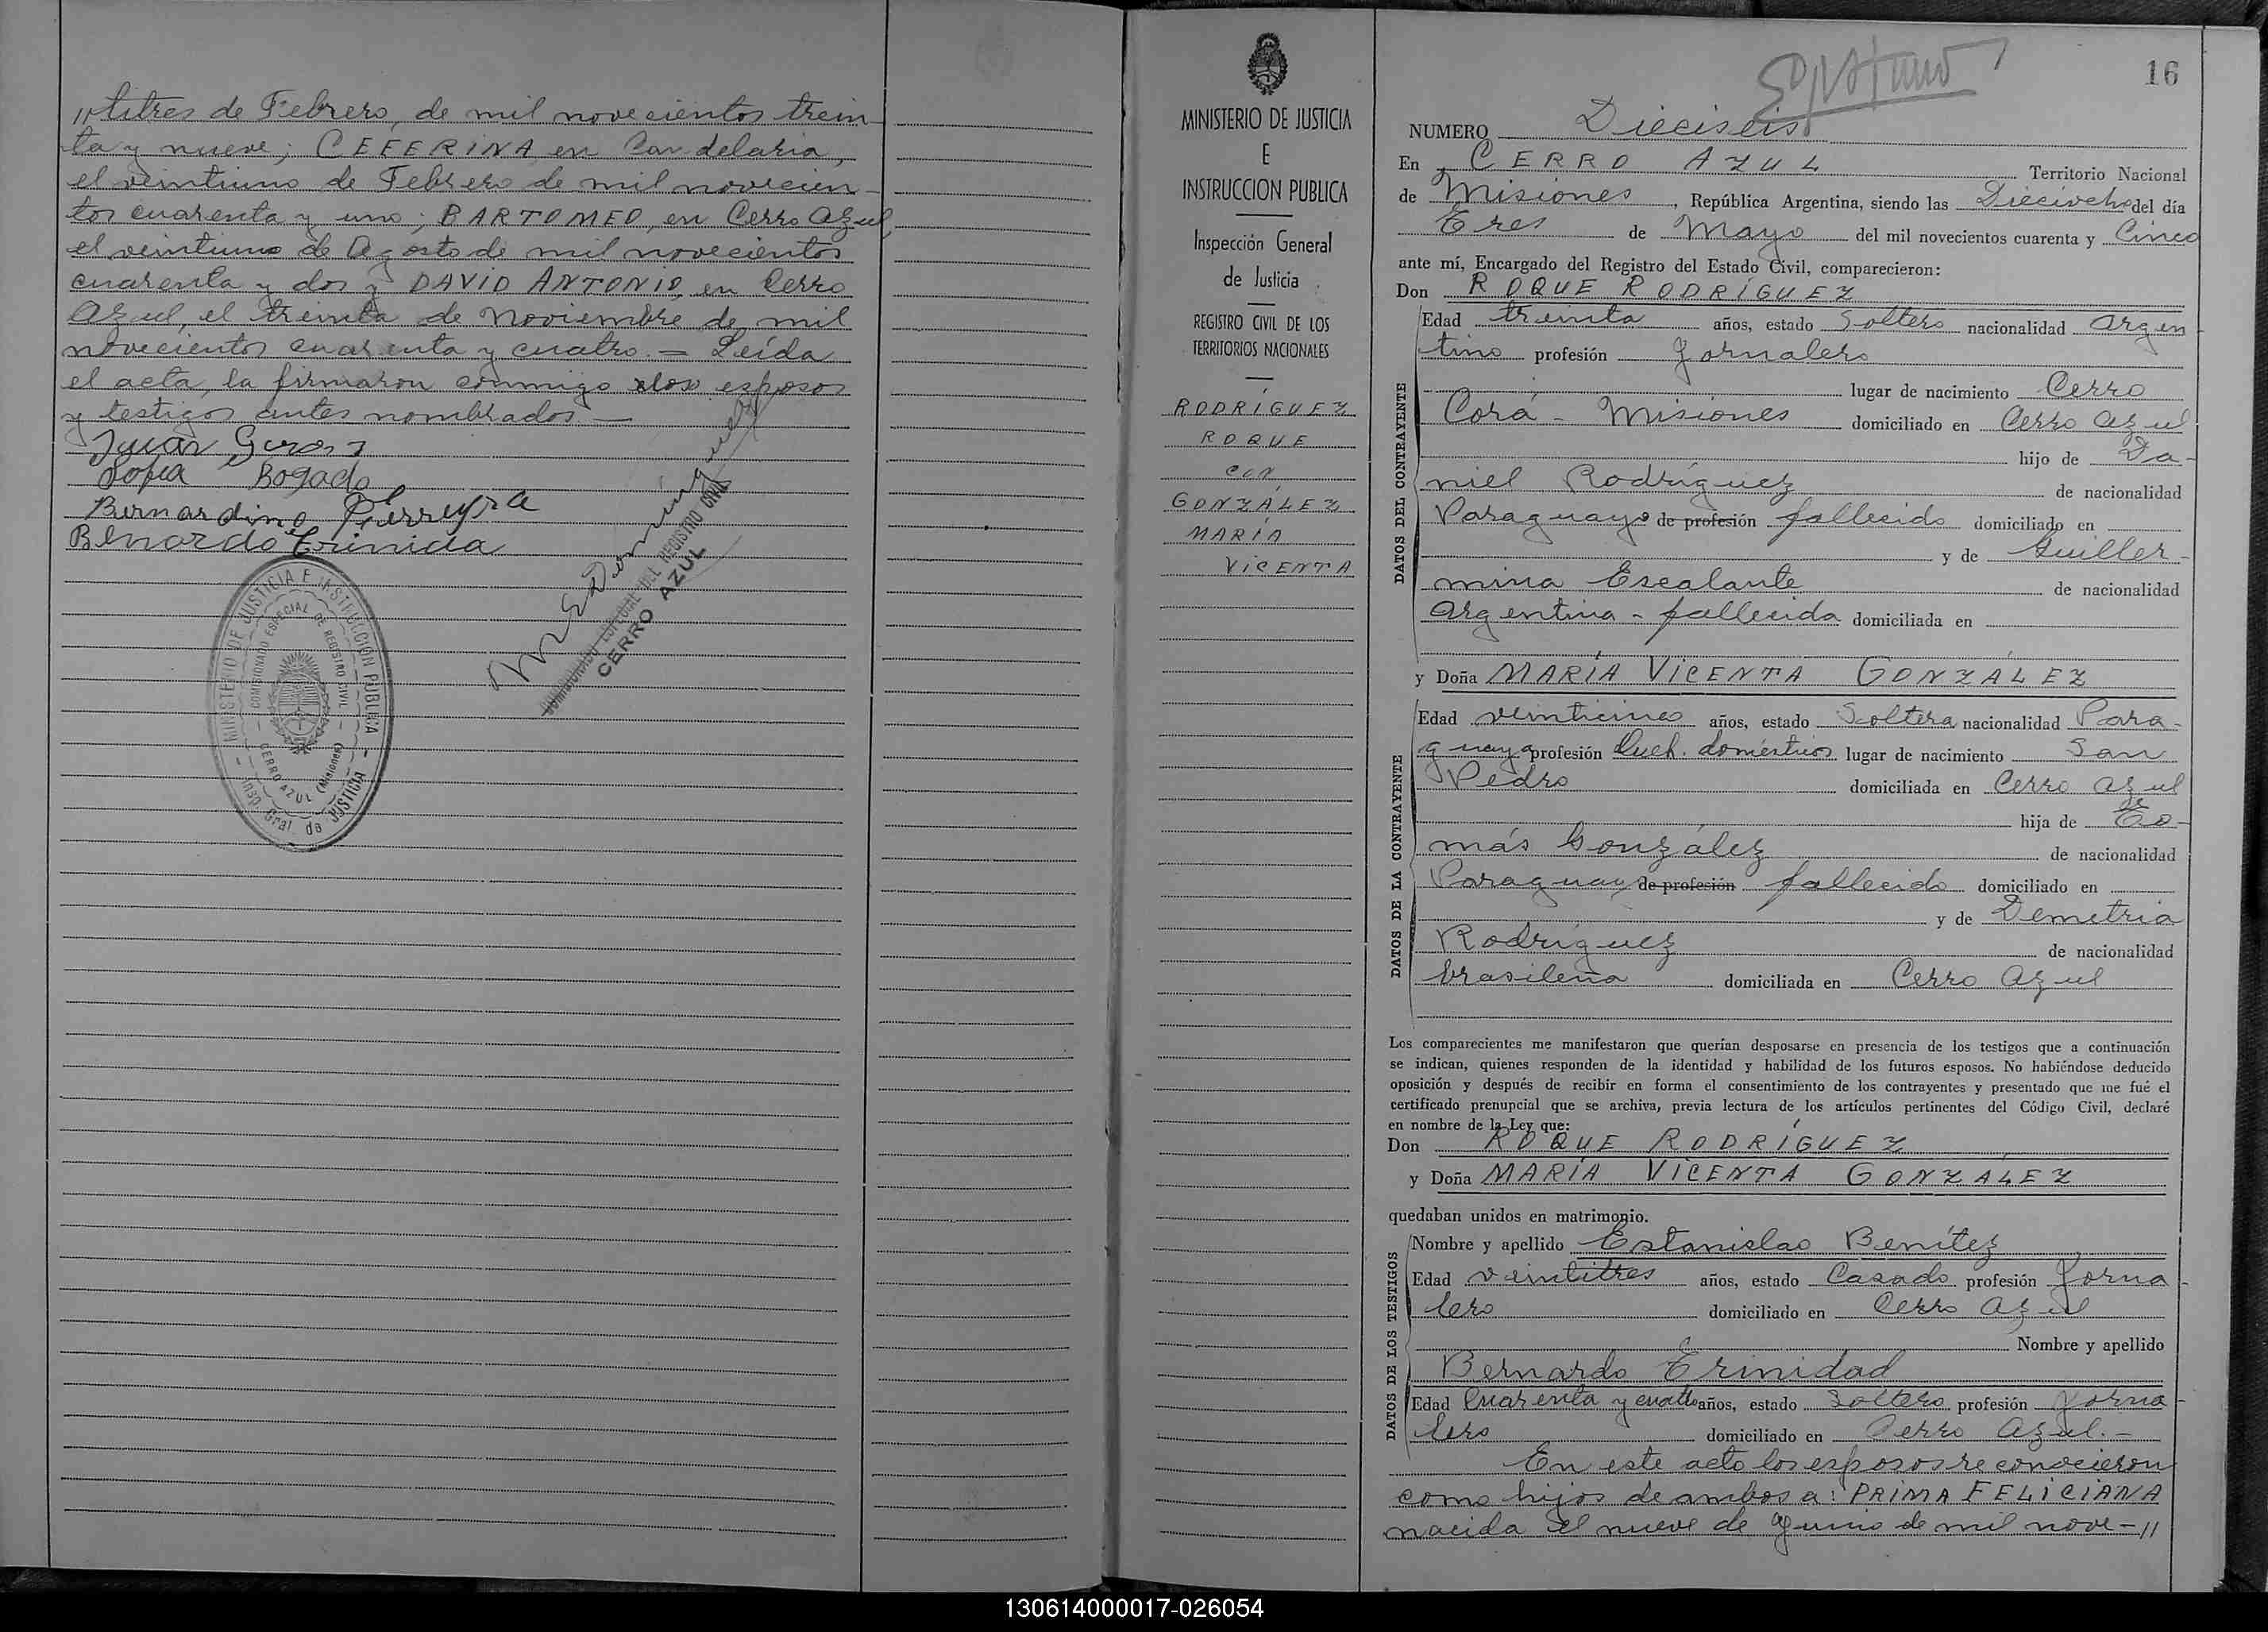 //titres de Febrero, de mil novecientos trein-
ta y nueve; CEFERINA en Candelaria,
el veintiuno de Febrero de mil novecien-
tos cuarenta y uno; BARTOMEO, en Cerro Azul,
el veintiuno de Agosto de mil novecientos
cuarenta y dos y DAVID ANTONIO, en Cerro
Azul, el treinta de Noviembre de mil
novecientos cuarenta y cuatro. = Leída
el acta, la firmaron conmigo los esposos
y testigos antes nombrados. —
Juan
Sofia Bogado
Bernardino Pierreyra
Benardo Trinida
MINISTERIO DE JUSTICIA E INSTRUCCION PUBLICA
COMISIONADO ESPECIAL DE REGISTRO CIVIL
CERRO AZUL (Misiones)
Insp. Gral. de JUSTICIA
ESPECIAL DEL REGISTRO CIVIL
CERRO AZUL
MINISTERIO DE JUSTICIA
E
INSTRUCCION PUBLICA
Inspección General
de Justicia
REGISTRO CIVIL DE LOS
TERRITORIOS NACIONALES
RODRÍGUEZ
ROQUE
CON
GONZÁLEZ
MARÍA
VICENTA
16
NUMERO Dieciseis
En CERRO AZUL Territorio Nacional
de Misiones, República Argentina, siendo las Dieciocho del día
Tres de Mayo del mil novecientos cuarenta y Cinco
ante mí, Encargado del Registro del Estado Civil, comparecieron:
Don ROQUE RODRÍGUEZ
DATOS DEL CONTRAYENTE
Edad treinta años, estado Soltero nacionalidad Argen-
tino profesión Jornalero
lugar de nacimiento Cerro
Corá - Misiones domiciliado en Cerro Azul
hijo de Da-
niel Rodríguez de nacionalidad
Paraguayo de profesión fallecido domiciliado en
y de Guiller-
mina Escalante de nacionalidad
Argentina - fallecida domiciliada en
y Doña MARÍA VICENTA GONZÁLEZ
DATOS DE LA CONTRAYENTE
Edad veinticinco años, estado Soltera nacionalidad Para-
guaya profesión Queh. domésticos lugar de nacimiento San
Pedro domiciliada en Cerro Azul
hija de To-
más González de nacionalidad
Paraguayo de profesión fallecido domiciliado en
y de Demetria
Rodríguez de nacionalidad
brasileña domiciliada en Cerro Azul
Los comparecientes me manifestaron que querían desposarse en presencia de los testigos que a continuación
se indican, quienes responden de la identidad y habilidad de los futuros esposos. No habiéndose deducido
oposición y después de recibir en forma el consentimiento de los contrayentes y presentado que me fué el
certificado prenupcial que se archiva, previa lectura de los artículos pertinentes del Código Civil, declaré
en nombre de la Ley que:
Don ROQUE RODRÍGUEZ
y Doña MARÍA VICENTA GONZÁLEZ
quedaban unidos en matrimonio.
DATOS DE LOS TESTIGOS
Nombre y apellido Estanislao Benítez
Edad veintitres años, estado Casado profesión Jorna-
lero domiciliado en Cerro Azul
Nombre y apellido
Bernardo Trinidad
Edad Cuarenta y cuatro años, estado Soltero profesión Jorna-
lero domiciliado en Cerro Azul. —
En este acto los esposos reconocieron
como hijos de ambos a: PRIMA FELICIANA
nacida el nueve de Junio de mil nove-//
130614000017-026054